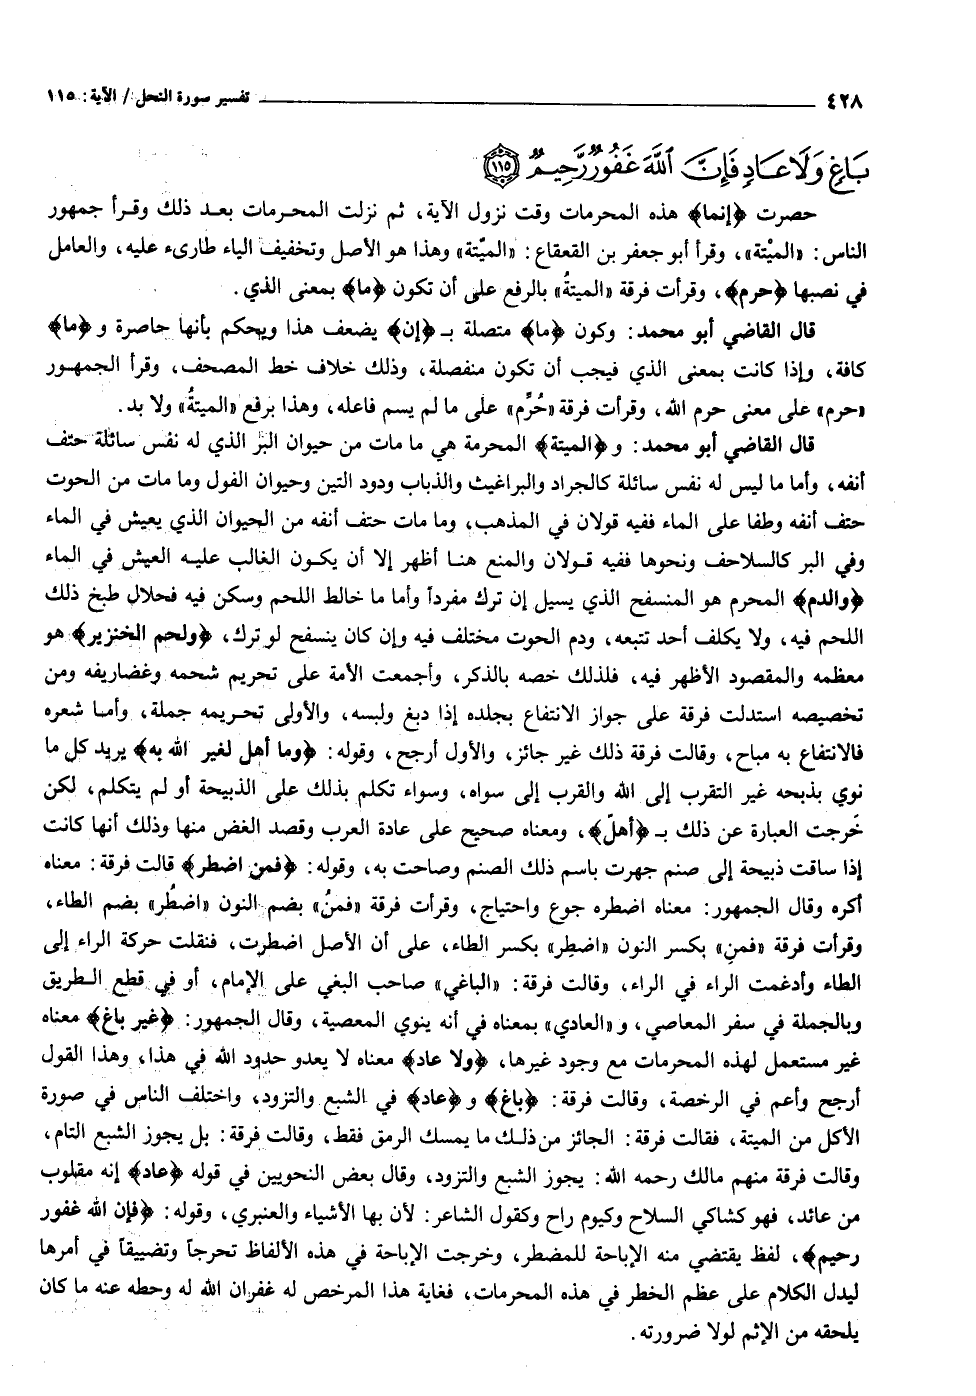 ٤٢٨ تفسير سورة النحل / الآية: ١١٥
بَاغٍ وَلَا عَادٍ فَإِنَّ ٱللَّهَ غَفُورٌ رَّحِيمٌ ١١٥
حصرت ﴿إنما﴾ هذه المحرمات وقت نزول الآية، ثم نزلت المحرمات بعد ذلك وقرأ جمهور
الناس: «الميْتة»، وقرأ أبو جعفر بن القعقاع: «الميّتة» وهذا هو الأصل وتخفيف الياء طارىء عليه، والعامل
في نصبها ﴿حرم﴾، وقرأت فرقة «الميتةُ» بالرفع على أن تكون ﴿ما﴾ بمعنى الذي.
قال القاضي أبو محمد: وكون ﴿ما﴾ متصلة بـ ﴿إن﴾ يضعف هذا ويحكم بأنها حاصرة و ﴿ما﴾
كافة، وإذا كانت بمعنى الذي فيجب أن تكون منفصلة، وذلك خلاف خط المصحف، وقرأ الجمهور
«حرم» على معنى حرم الله، وقرأت فرقة «حُرِّم» على ما لم يسم فاعله، وهذا برفع «الميتةُ» ولا بد.
قال القاضي أبو محمد: و ﴿الميتة﴾ المحرمة هي ما مات من حيوان البرّ الذي له نفس سائلة حتف
أنفه، وأما ما ليس له نفس سائلة كالجراد والبراغيث والذباب ودود التين وحيوان الفول وما مات من الحوت
حتف أنفه وطفا على الماء ففيه قولان في المذهب، وما مات حتف أنفه من الحيوان الذي يعيش في الماء
وفي البر كالسلاحف ونحوها ففيه قولان والمنع هنا أظهر إلا أن يكون الغالب عليه العيش في الماء
﴿والدم﴾ المحرم هو المنسفح الذي يسيل إن ترك مفرداً وأما ما خالط اللحم وسكن فيه فحلال طبخ ذلك
اللحم فيه، ولا يكلف أحد تتبعه، ودم الحوت مختلف فيه وإن كان ينسفح لو ترك، ﴿ولحم الخنزير﴾ هو
معظمه والمقصود الأظهر فيه، فلذلك خصه بالذكر، وأجمعت الأمة على تحريم شحمه وغضاريفه ومن
تخصيصه استدلت فرقة على جواز الانتفاع بجلده إذا دبغ ولبسه، والأولى تحريمه جملة، وأما شعره
فالانتفاع به مباح، وقالت فرقة ذلك غير جائز، والأول أرجح، وقوله: ﴿وما أهل لغير الله به﴾ يريد كل ما
نوي بذبحه غير التقرب إلى الله والقرب إلى سواه، وسواء تكلم بذلك على الذبيحة أو لم يتكلم، لكن
خَرجت العبارة عن ذلك بـ ﴿أهلّ﴾، ومعناه صحيح على عادة العرب وقصد الغض منها وذلك أنها كانت
إذا ساقت ذبيحة إلى صنم جهرت باسم ذلك الصنم وصاحت به، وقوله: ﴿فمن اضطر﴾ قالت فرقة: معناه
أكره وقال الجمهور: معناه اضطره جوع واحتياج، وقرأت فرقة «فمنُ» بضم النون «اضطُر» بضم الطاء،
وقرأت فرقة «فمنِ» بكسر النون «اضطِر» بكسر الطاء، على أن الأصل اضطرت، فنقلت حركة الراء إلى
الطاء وأدغمت الراء في الراء، وقالت فرقة: «الباغي» صاحب البغي على الإمام، أو في قطع الطريق
وبالجملة في سفر المعاصي، و «العادي» بمعناه في أنه ينوي المعصية، وقال الجمهور: ﴿غير باغ﴾ معناه
غير مستعمل لهذه المحرمات مع وجود غيرها، ﴿ولا عاد﴾ معناه لا يعدو حدود الله في هذا، وهذا القول
أرجح وأعم في الرخصة، وقالت فرقة: ﴿باغ﴾ و ﴿عاد﴾ في الشبع والتزود، واختلف الناس في صورة
الأكل من الميتة، فقالت فرقة: الجائز من ذلك ما يمسك الرمق فقط، وقالت فرقة: بل يجوز الشبع التام،
وقالت فرقة منهم مالك رحمه الله: يجوز الشبع والتزود، وقال بعض النحويين في قوله ﴿عاد﴾ إنه مقلوب
من عائد، فهو كشاكي السلاح وكيوم راح وكقول الشاعر: لأن بها الأشياء والعنبري، وقوله: ﴿فإن الله غفور
رحيم﴾، لفظ يقتضي منه الإباحة للمضطر، وخرجت الإباحة في هذه الألفاظ تحرجاً وتضييقاً في أمرها
ليدل الكلام على عظم الخطر في هذه المحرمات، فغاية هذا المرخص له غفران الله له وحطه عنه ما كان
يلحقه من الإثم لولا ضرورته.